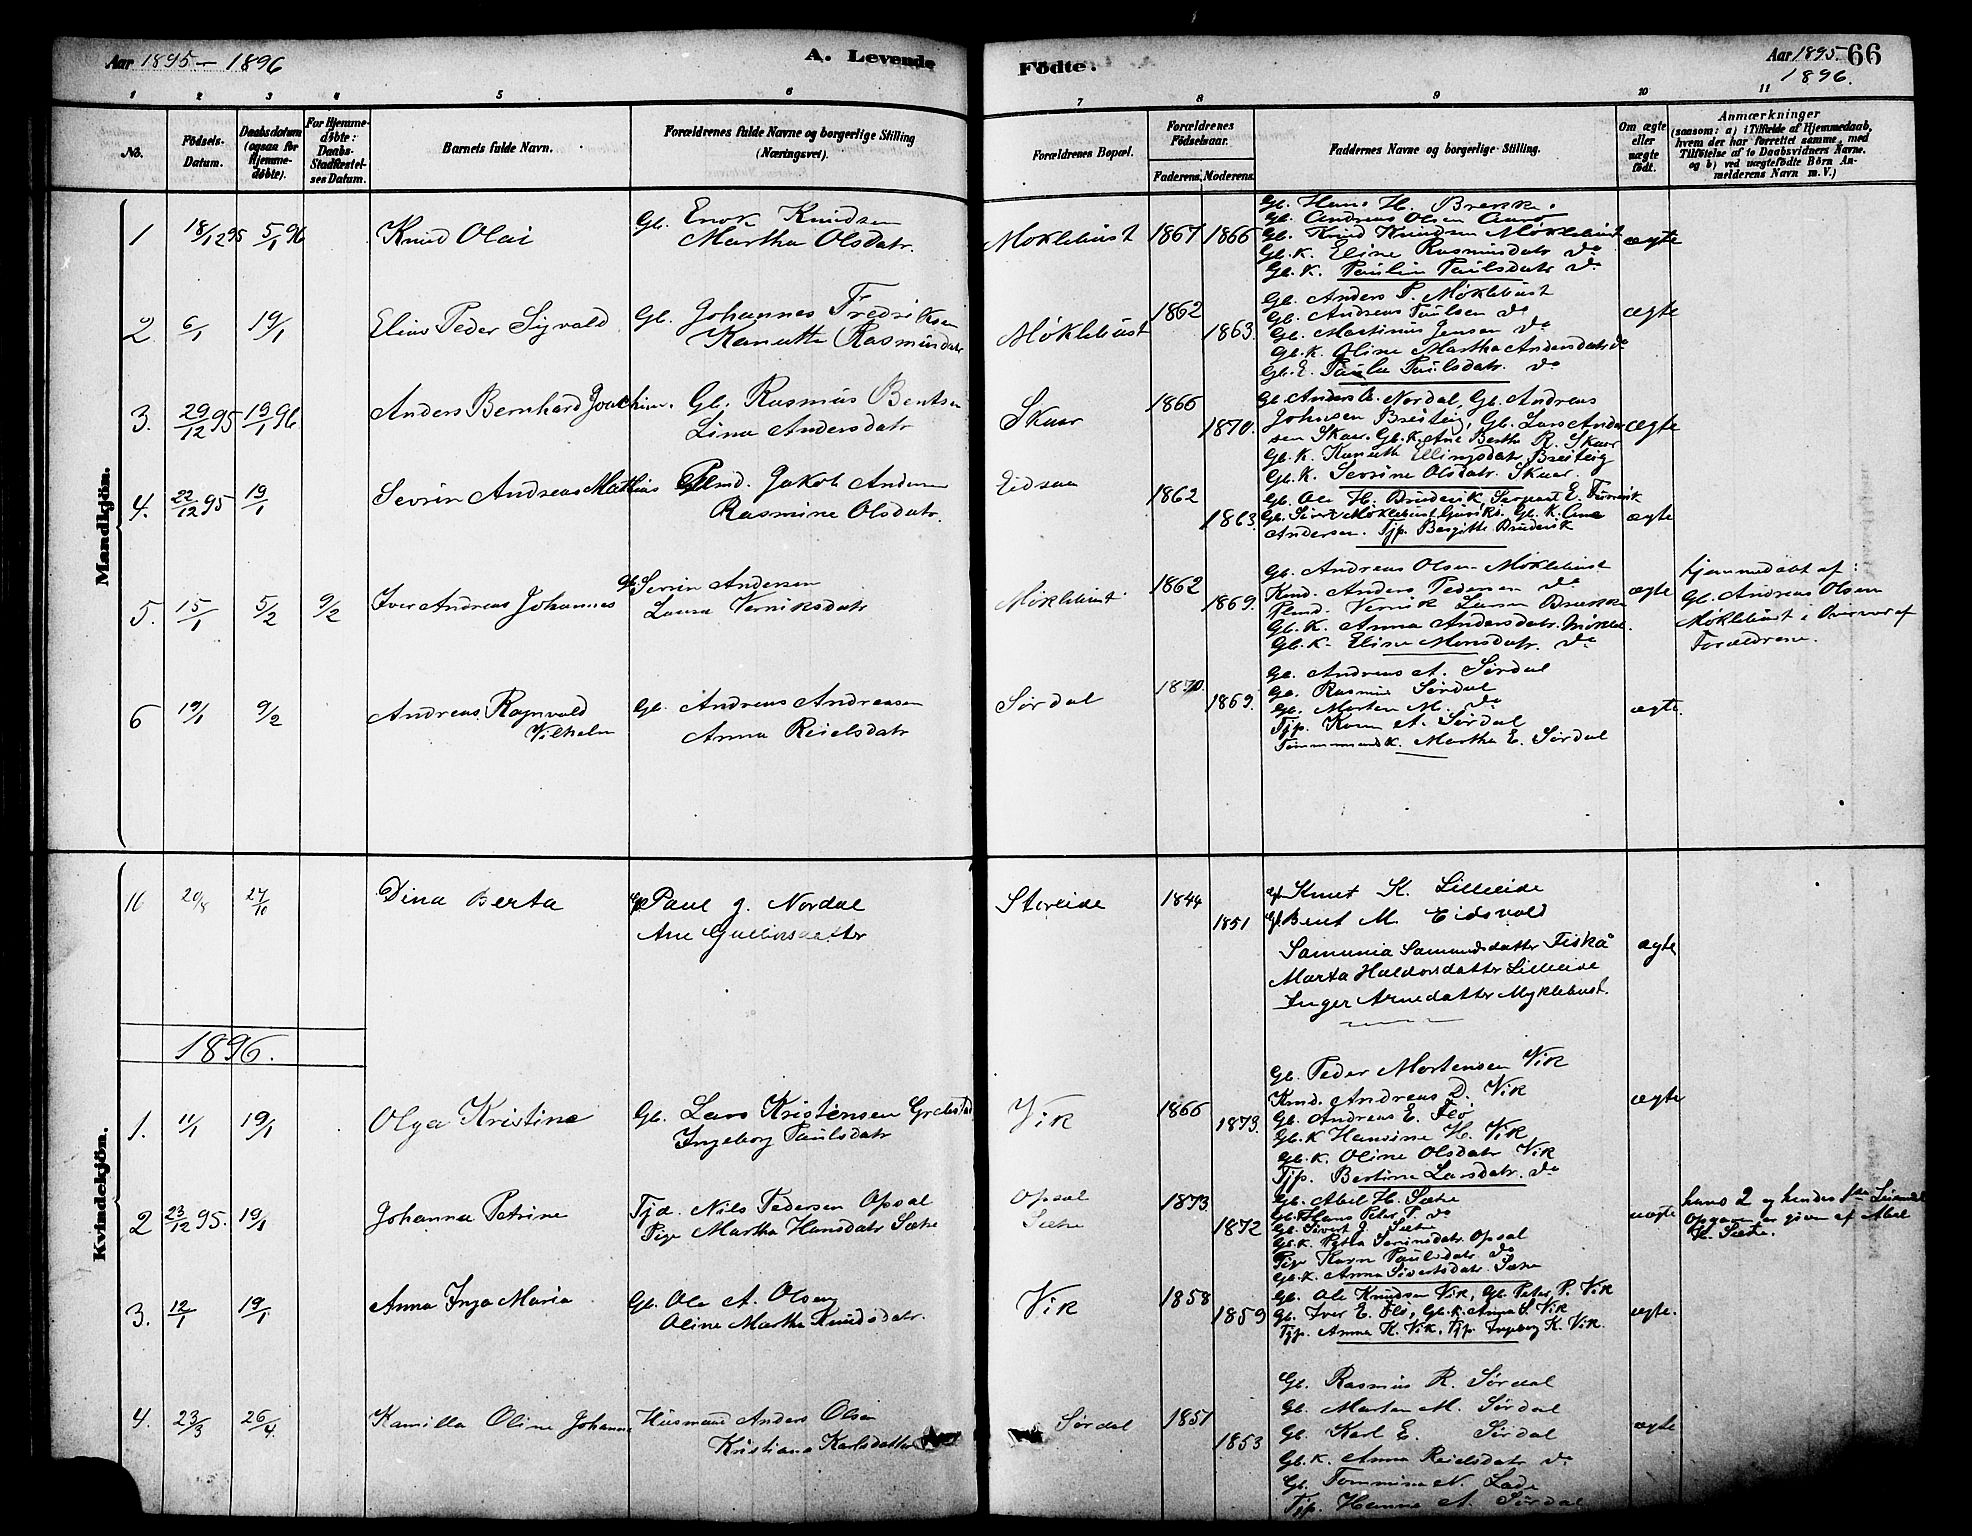 Aar 1895 – 1896
A. Levende
Födte.
Aar 1895 66
1896.
1 2 3 4 5 6 7 8 9 10 11
No.
Födsels-Datum.
Daabsdatum (ogsaa for Hjemme-døbte).
For Hjemme-døbte: Daabs-Stadfæstel-ses Datum.
Barnets fulde Navn.
Forældrenes fulde Navne og borgerlige Stilling (Næringsvei).
Forældrenes Bopæl.
Forældrenes Födselsaar.
Faderens. Moderens.
Faddernes Navne og borgerlige Stilling.
Om ægte eller uægte födt.
Anmærkninger
(saasom: a) i Tilfælde af Hjemmedaab, hvem der har forrettet samme, med Tilföielse af to Daabsvidners Navne, og b) ved uægtefödte Börn An-melderens Navn m. V.)
Mandkjön.
1 18/12 95 5/1 96 Knud Olai Gb. Enok Knudsen
Martha Olsdatr.
Møklebust 1867 1866 ægte
Gb. Hans H. Brekke.
Gb. Andreas Olsen Aarø
Gb. Knud Knudsen Møklebust
Gb.K. Eline Rasmusdatr do
Gb.K. Paulin Paulsdatr do
2 6/1 19/1 Elias Peder Sigvald Gb. Johannes Fredriksen
Kanutte Rasmusdatr
Møklebust 1862 1863. ægte
Gb. Anders P. Møklebust
Gb. Andreas Paulsen do
Gb. Martinus Jensen do
Gb.K. Oline Martha Andersdatr do
Gb.E. Paula Paulsdatr. do
3. 29/12 95 19/1 96 Anders Bernhard Joachim. Gb. Rasmus Bentsen
Lina Andersdatr
Skaar 1866 1870. ægte
Gb. Anders A. Nordal, Gb. Andreas
Johnsen Breiteig, Gb. Lars Ander
sen Skaar. Gb.K. Ane Berthe R. Skaar
Gb.K. Kanutte Ellingsdatr Breiteig
Gb.K. Sevrine Olsdatr. Skaar.
4. 22/12 95 19/1 Sevrin Andreas Mathias Plmd. Jakob Andersen
Rasmine Olsdatr.
Eidsaa 1862 1863. ægte
Gb. Ole H. Bruderik, Sergeant E.
Gb. Siver Møklebust, Gb.K. Ane
Andersen. Tjp. Bergitte Bruderik
5. 15/1 5/2 9/2 Iver Andreas Johannes Gb. Sevrin Andersen
Laura Verniksdatr
Møklebust 1862 1869. ægte
Gb. Andreas Olsen Møklebust
Kmd. Anders Pedersen do
Plmd. Vernik Larsen Brekke
Gb.K. Anna Andersdatr. Møkleb.
Gb.K. Eline Monsdatr. do
hjemmedøbt af:
Gb. Andreas Olsen
Møklebust i Overvær af
Forældrene.
6 19/1 9/2 Andreas Ragnvald
Vilhelm
Gb. Andreas Andreasen
Anna Reielsdatr
Sørdal 1870. 1869. ægte.
Gb. Andreas A. Sørdal
Gb. Rasmus Sørdal
Gb. Morten M. do
Tjp. Karen A. Sørdal
Tømmermand K. Martha E. Sørdal
Kvindekjön.
16 20/8 27/10 Dina Berta Gb Paul J. Nordal
Ane Gulleiksdatter
Storeide 1844 1851 ægte
Gb Knut K. Lilleeide
Gb Bent M. Eidsvold
Samunia Samundsdatter Fiskå
Marta Haldorsdatter Lilleeide
Inger Arnedatter Myklebust.
1896.
1. 11/1 19/1 Olga Kristine Gb. Lars Kristensen
Ingeborg Paulsdatr
Vik 1866 1873. ægte
Gb. Peder Mortensen Vik
Kmd. Andreas D. Vik
Gb. Andreas E. Flo
Gb.K Hansine H. Vik
Gb.K. Oline Olsdatr Vik
Tjp. Bertine Larsdatr. do
2 23/12 95. 19/1 Johanna Petrine Tjd. Nils Pedersen Opsal
Pige Martha Hansdatr Sætre
Opsal
Sætre
1873. 1872 uægte
Gb. Abel H. Sætre
Gb. Hans Peter P. do
Gb. Sivert J. Sætre
Gb.K. Petra Sevrinsdatr. Opsal
Pige Karen Paulsdatr. do
Gb.K. Anna Sivertsdatr. Sætre
hans 2 og hendes 1ste Leiermaal
Opgaven er given af Abel
H. Sætre.
3. 12/1 19/1 Anna Inga Maria Gb. Ole A. Olsen
Oline Martha Knudsdatr.
Vik 1858 1859 ægte.
Gb. Ole Knudsen Vik, Gb. Peter P. Vik
Gb. Iver E. Flo, Gb.K. Anna S. Vik
Tjp. Anna K. Vik, Tjp. Ingeborg K. Vik.
4. 23/3 26/4. Kamilla Oline Johanne Husmand Anders Olsen
Kristiana Karlsdatter
Sørdal 1851 1853 ægte
Gb. Rasmus R. Sørdal
Gb. Morten M. Sørdal
Gb. Karl E. Sørdal
Gb.K. Anna Reielsdatr do
Gb. Tommine N. Lade
Tjp. Hanna A. Sørdal